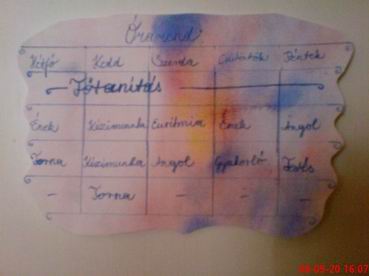 Órarend
Hétfő Kedd Szerda Csütörtök Péntek
Főtanítás
Ének Kézimunka Euritmia Ének Angol
Torna Kézimunka Angol Gyakorló Festés
- Torna - - -
08-05-20 16:07